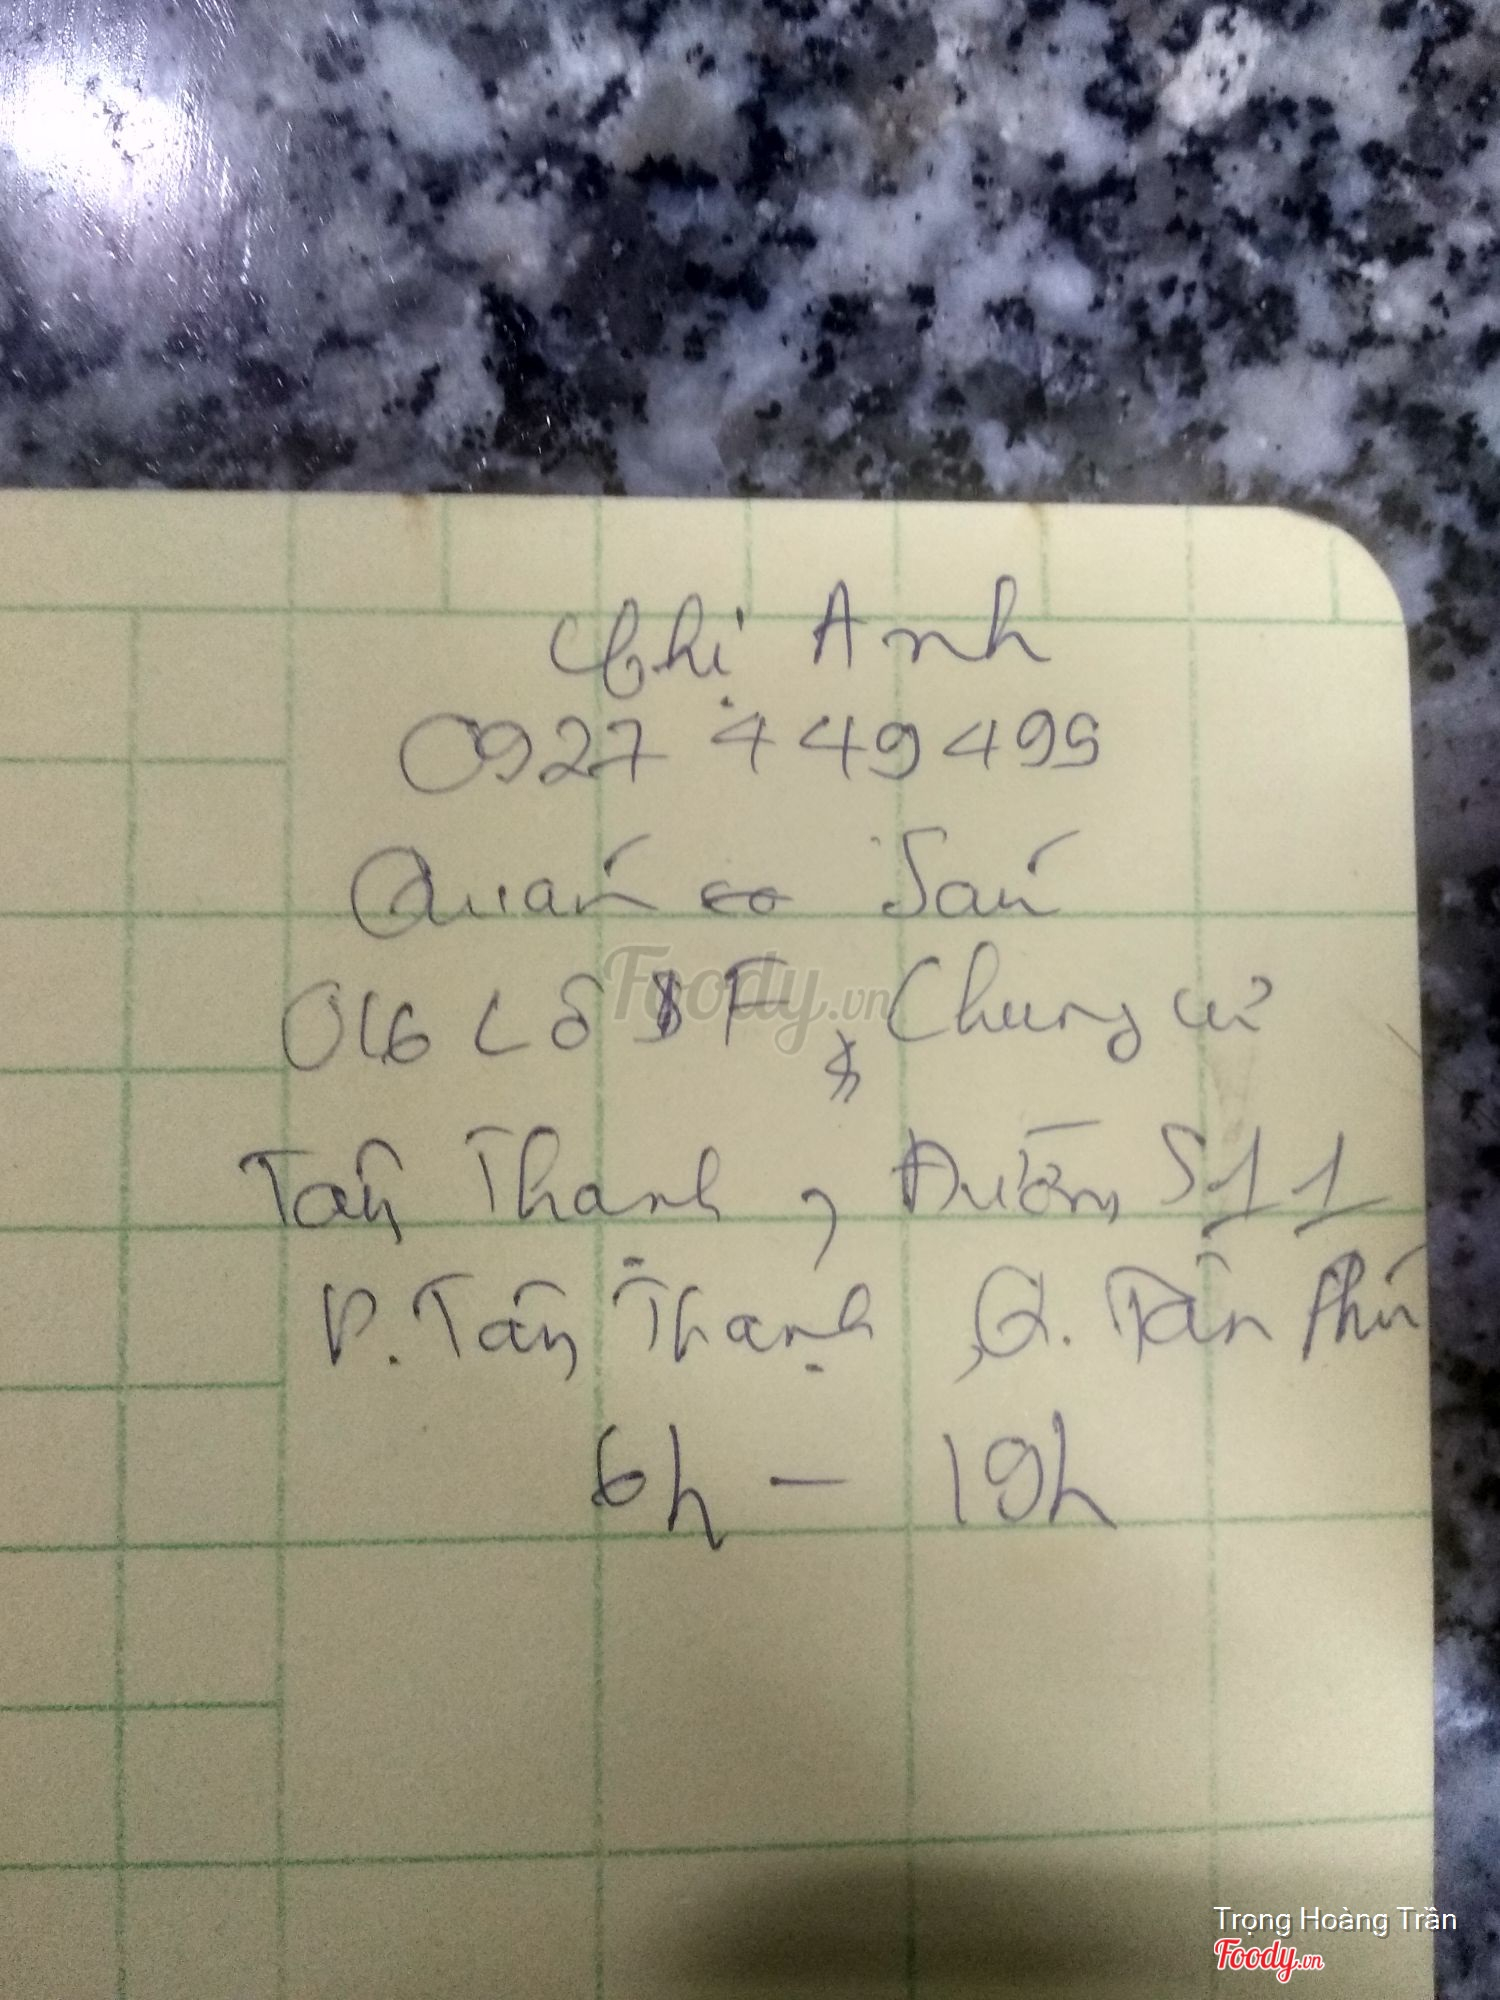 Chị Anh
0927 449499
Quán Sáu
016 Lô F, Chung cư
Tân Thanh, Đường S11
P. Tân Thạnh, Q. Tân Phú
6h - 19h
Foody.vn
Trọng Hoàng Trần
Foody.vn